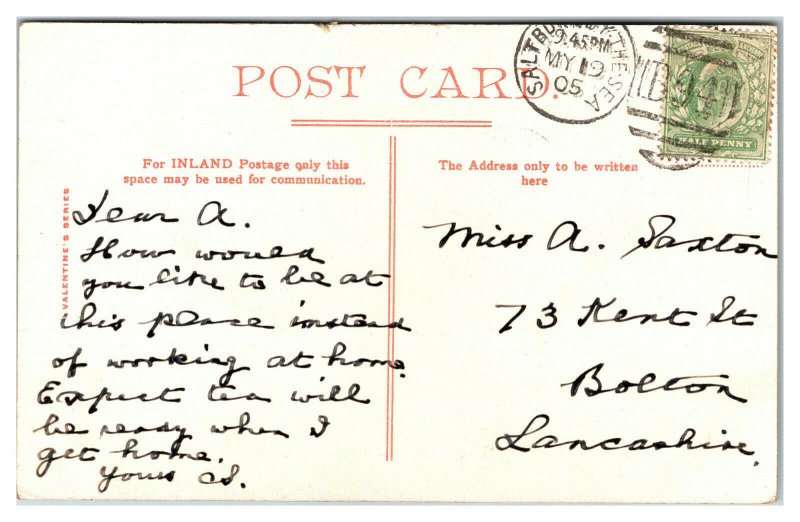 POST CARD.
SALTBURN BY THE SEA
9.45PM
MY 19
05
HALF PENNY
For INLAND Postage only this
space may be used for communication.
The Address only to be written
here
VALENTINE'S SERIES
Dear A.
How would
you like to be at
this place instead
of working at home.
Expect tea will
be ready when I
get home.
Yours
Miss A. Saxton
73 Kent St
Bolton
Lancashire.